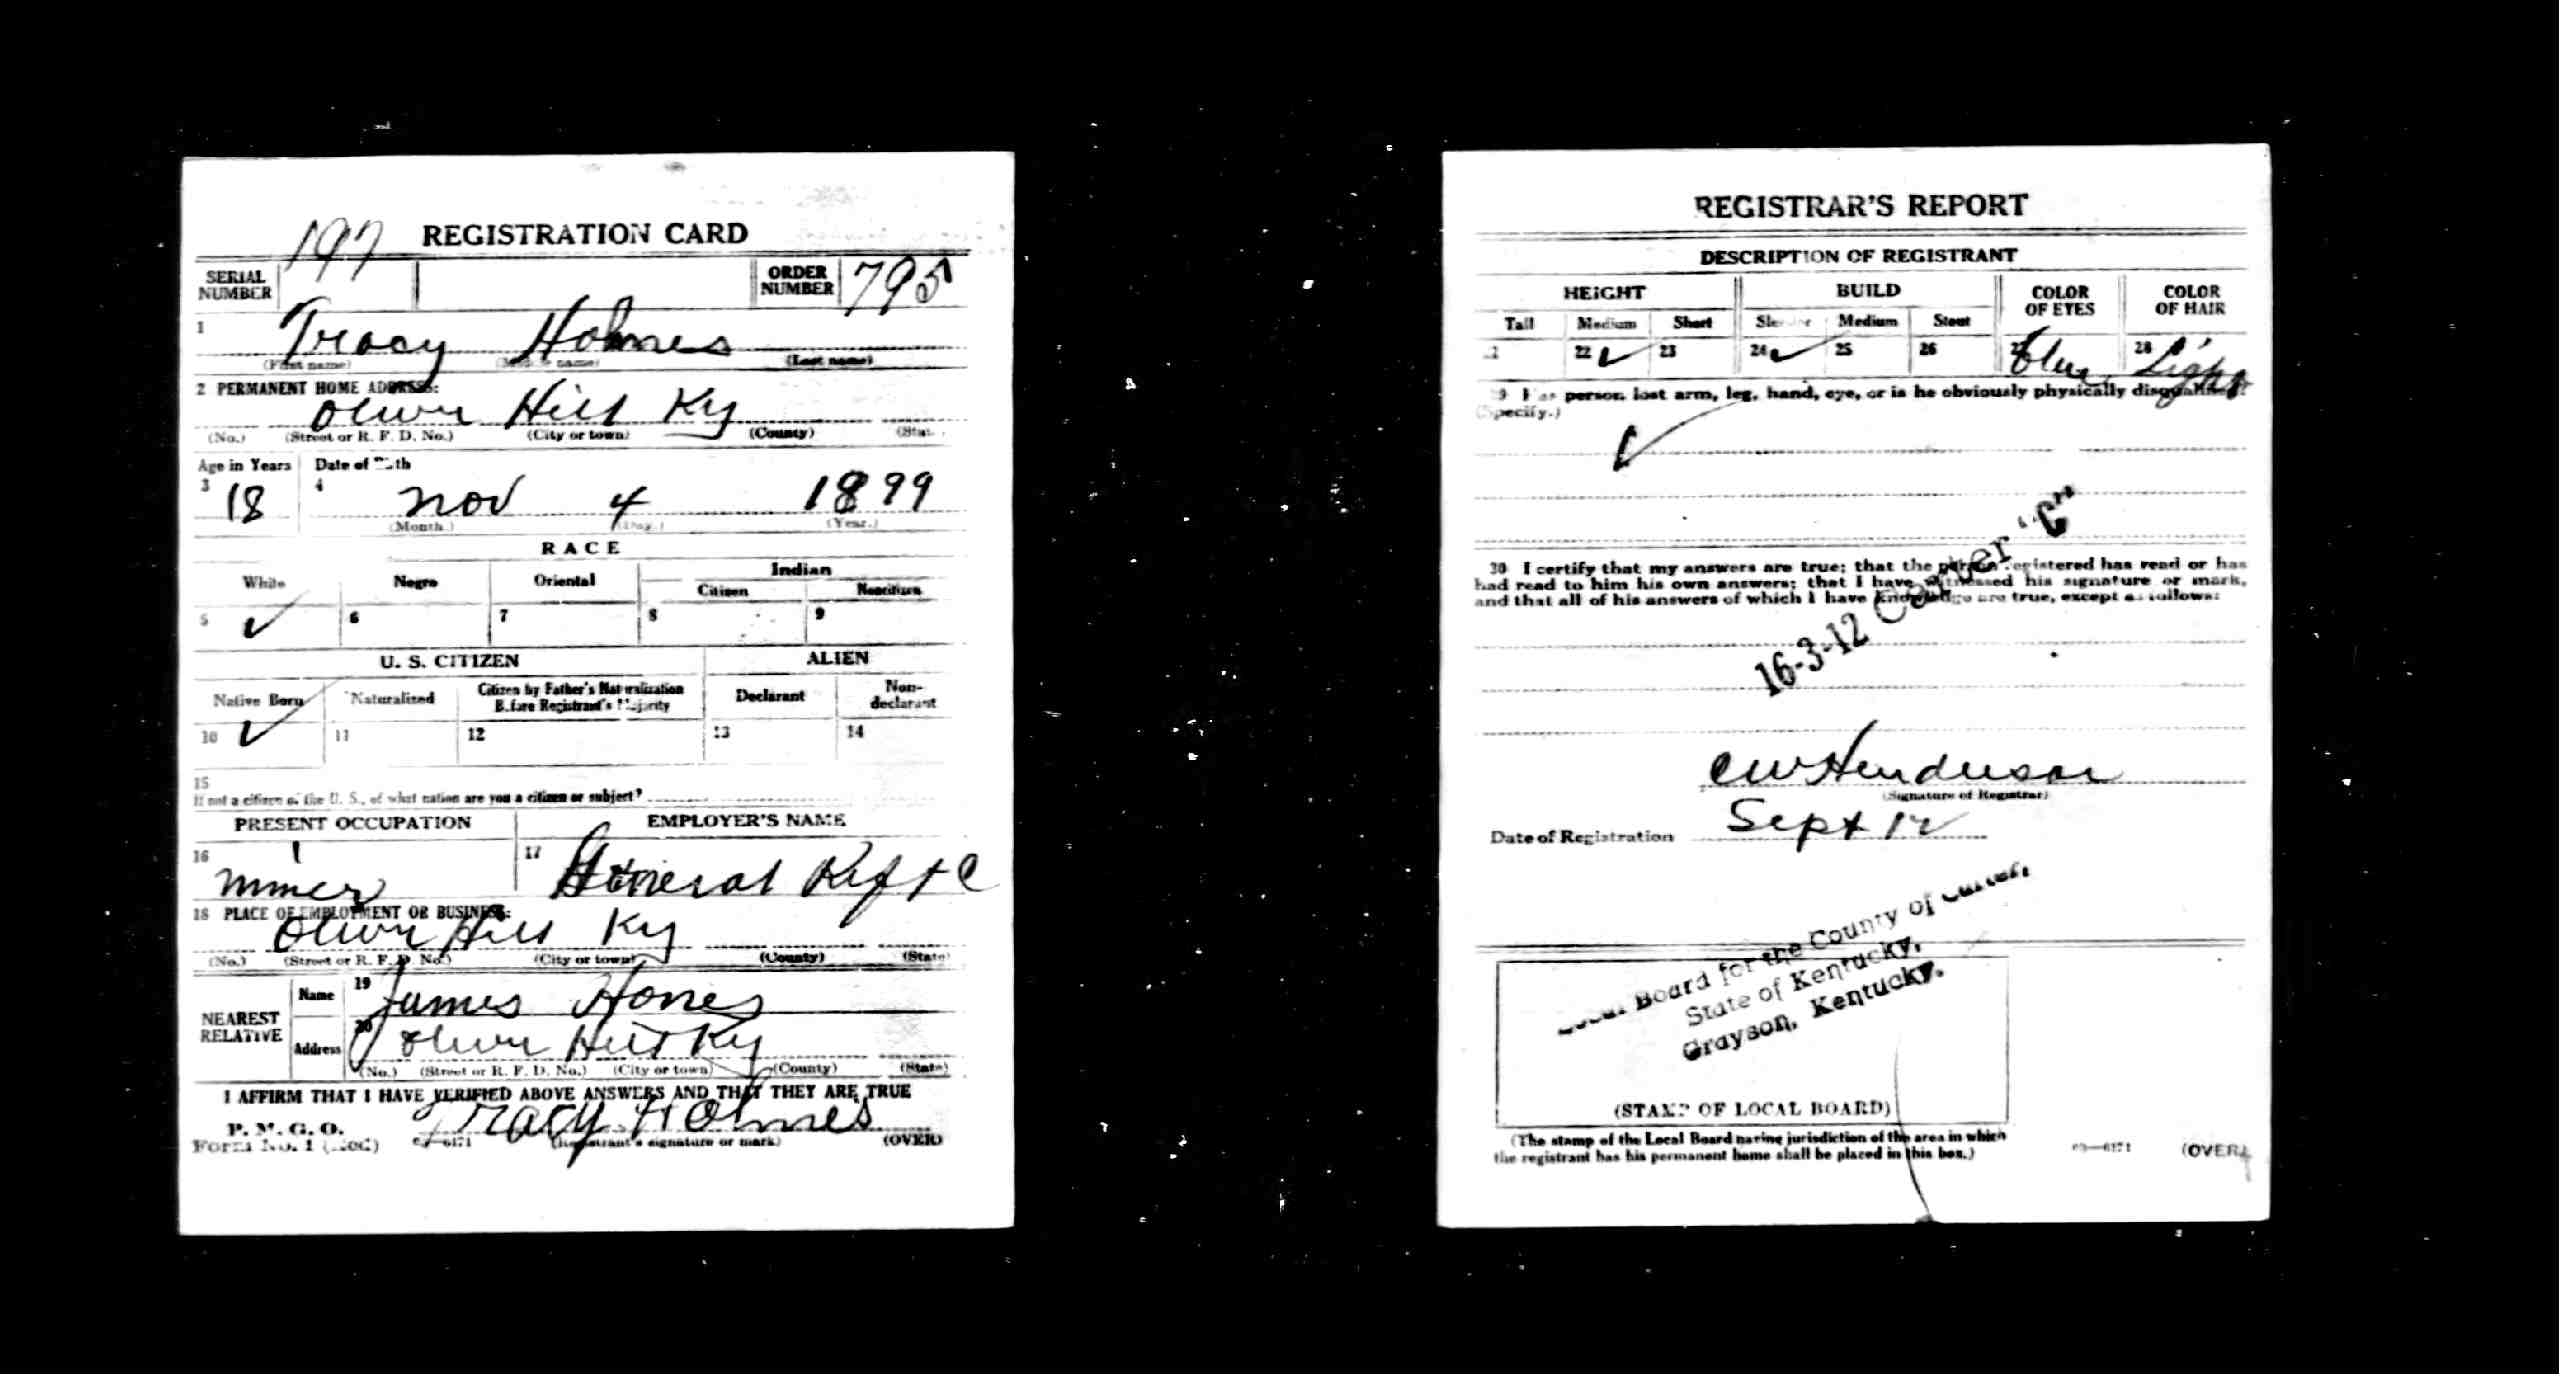 REGISTRATION CARD
SERIAL NUMBER 197
ORDER NUMBER 795
1 Tracy Holmes
(First name) (Middle name) (Last name)
2 PERMANENT HOME ADDRESS:
Olive Hill Ky
(No.) (Street or R. F. D. No.) (City or town) (County)
Age in Years Date of
3 18 4 Nov 4 1899
(Month.) (Day.) (Year.)
RACE
White Negro Oriental Indian
Citizen Noncitizen
5 ✓ 6 7 8 9
U. S. CITIZEN ALIEN
Native Born Naturalized Citizen by Father's Naturalization Before Registrant's Majority Declarant Non-declarant
10 ✓ 11 12 13 14
15
If not a citizen of the U. S., of what nation are you a citizen or subject?
PRESENT OCCUPATION EMPLOYER'S NAME
16 miner 17 General
18 PLACE OF EMPLOYMENT OR BUSINESS:
Olive Hill Ky
(No.) (Street or R. F. D. No.) (City or town) (County) (State)
NEAREST RELATIVE
Name 19 James
Address 20 Olive Hill Ky
(No.) (Street or R. F. D. No.) (City or town) (County) (State)
I AFFIRM THAT I HAVE VERIFIED ABOVE ANSWERS AND THAT THEY ARE TRUE
P. M. G. O.
Form No. 1 (Red) Tracy Holmes
(Registrant's signature or mark) (OVER)
REGISTRAR'S REPORT
DESCRIPTION OF REGISTRANT
HEIGHT BUILD COLOR OF EYES COLOR OF HAIR
Tall Medium Short Slender Medium Stout
22 ✓ 23 24 ✓ 25 26 27 blue 28 Light
29 Has person lost arm, leg, hand, eye, or is he obviously physically disqualified?
(Specify.)
✓
30 I certify that my answers are true; that the person registered has read or has
had read to him his own answers; that I have witnessed his signature or mark,
and that all of his answers of which I have knowledge are true, except as follows:
16-3-12 Carter "C"
C W Henderson
(Signature of Registrar)
Date of Registration Sept 12
Local Board for the County of Carter,
State of Kentucky,
Grayson, Kentucky.
(STAMP OF LOCAL BOARD)
(The stamp of the Local Board having jurisdiction of the area in which
the registrant has his permanent home shall be placed in this box.)
(OVER)